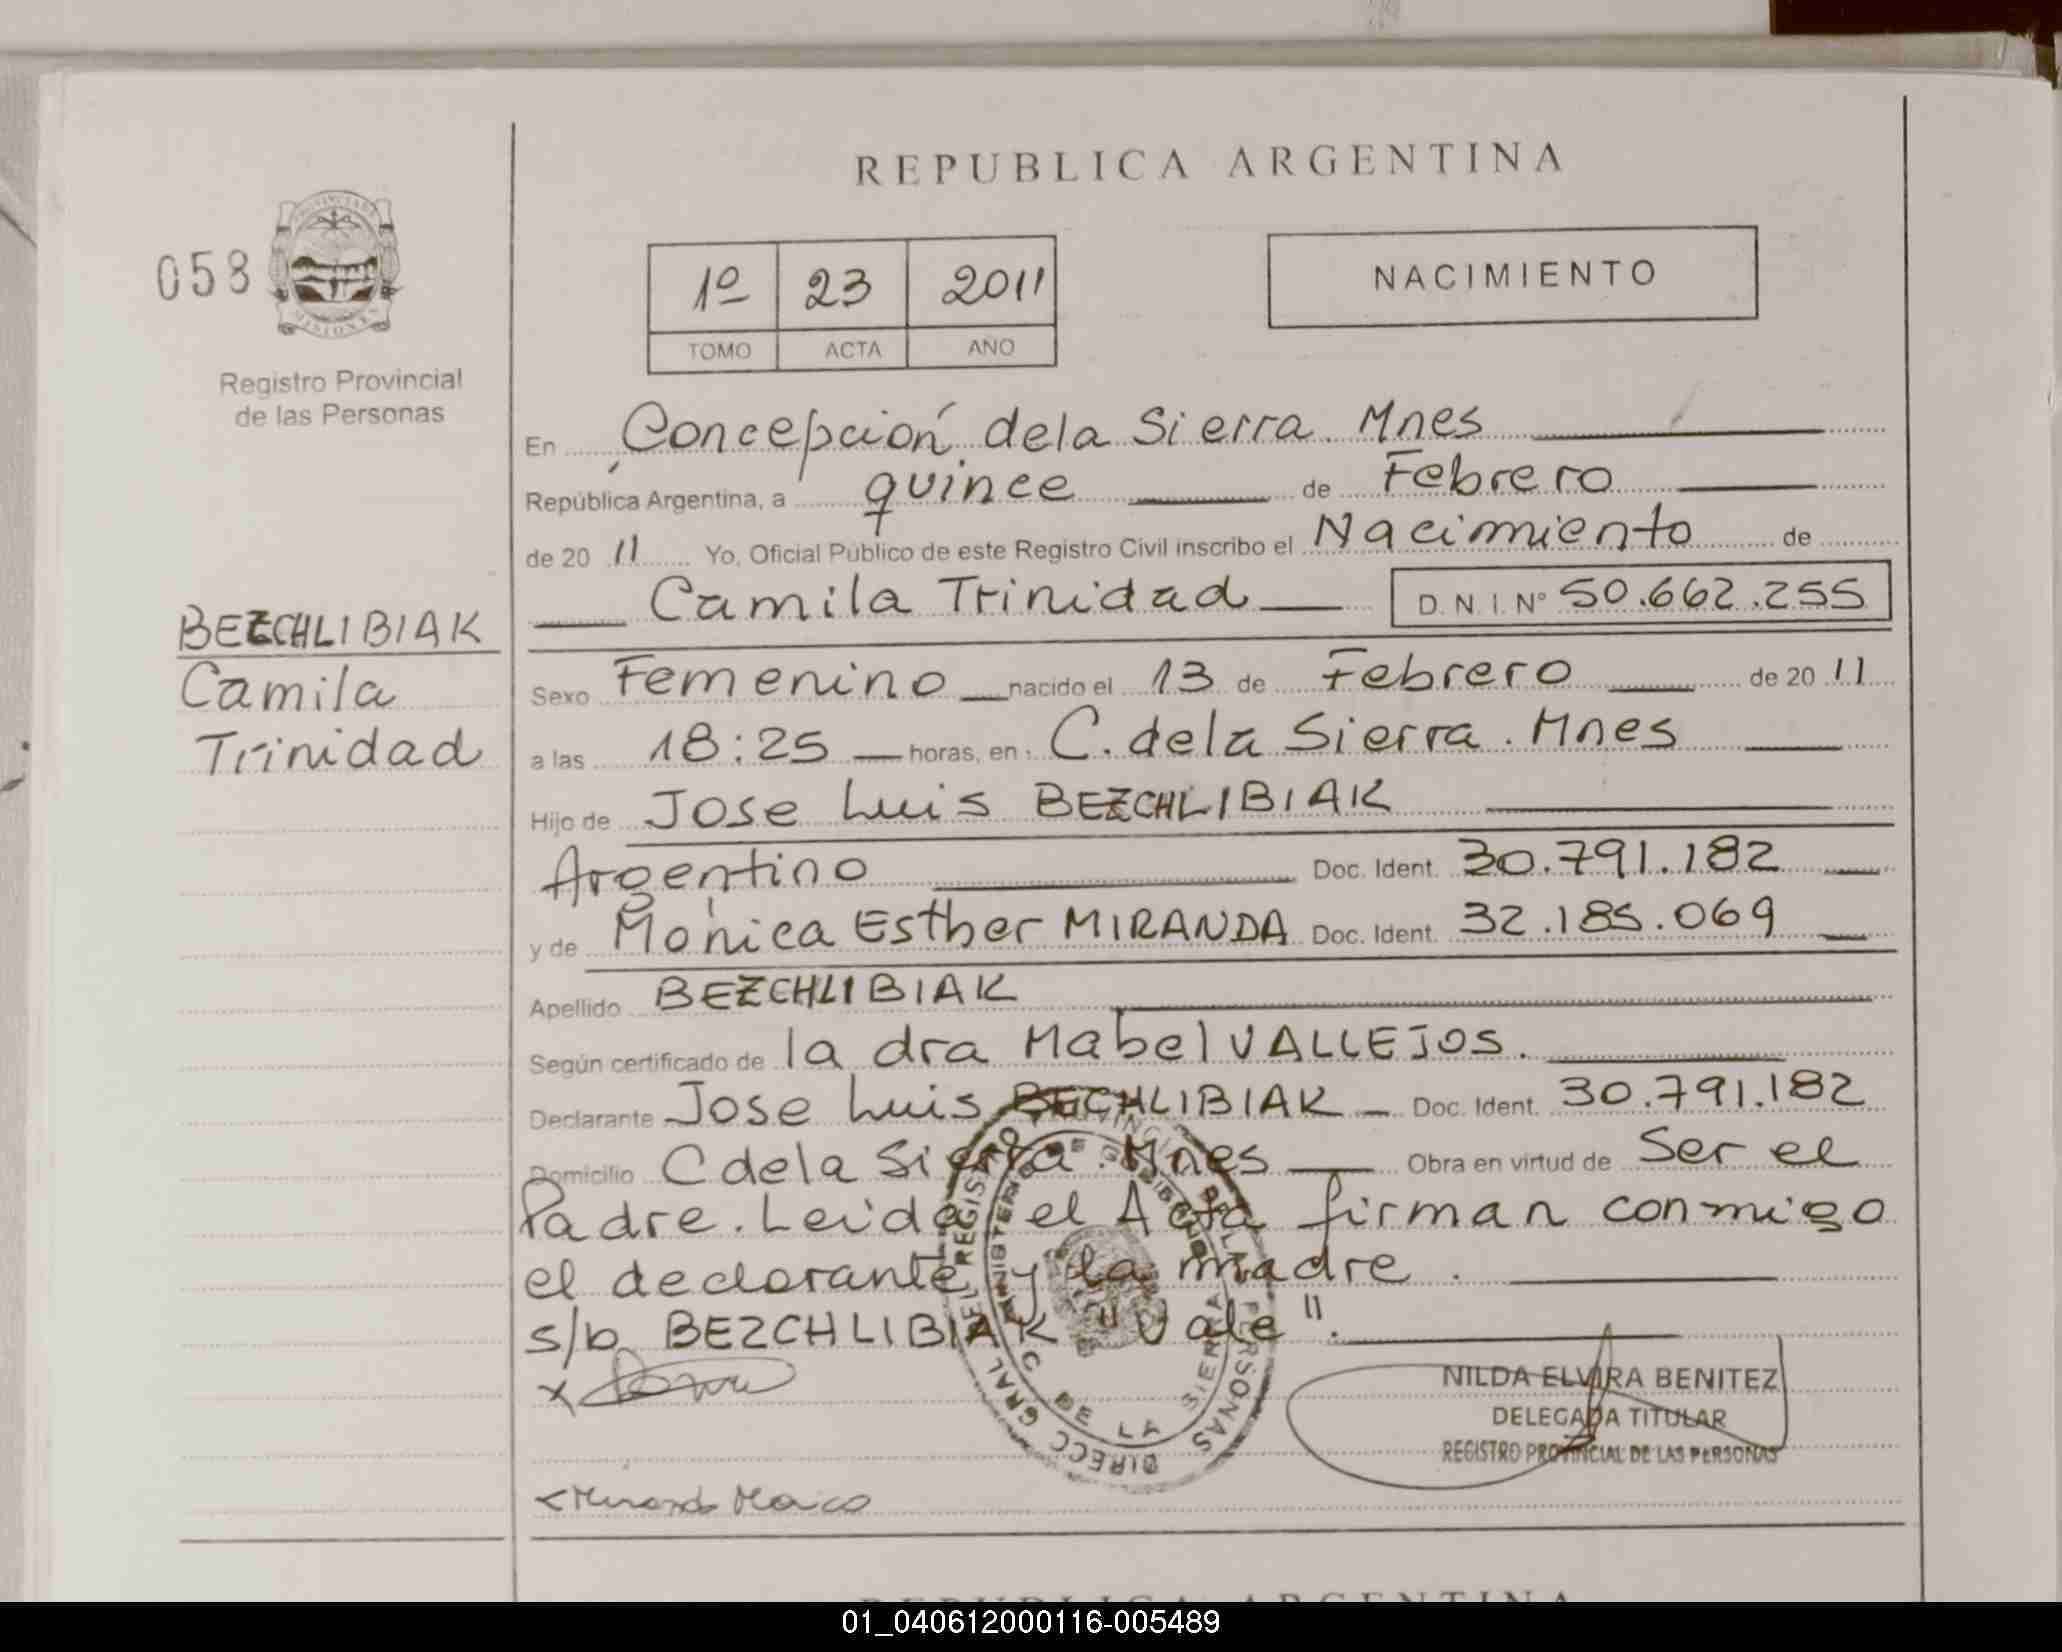 REPUBLICA ARGENTINA
058
PROVINCIA DE
MISIONES
Registro Provincial
de las Personas
1º 23 2011
TOMO ACTA AÑO
NACIMIENTO
En Concepción dela Sierra. Mnes
República Argentina, a quince de Febrero
de 20 11 Yo, Oficial Público de este Registro Civil inscribo el Nacimiento de
Camila Trinidad D.N.I. Nº 50.662.255
BEZCHLIBIAK
Camila
Trinidad
Sexo Femenino nacido el 13 de Febrero de 20 11
a las 18:25 horas, en: C. dela Sierra. Mnes
Hijo de Jose Luis BEZCHLIBIAK
Argentino Doc. Ident. 30.791.182
y de Mónica Esther MIRANDA Doc. Ident. 32.185.069
Apellido BEZCHLIBIAK
Según certificado de la dra Mabel VALLEJOS.
Declarante Jose Luis BECHLIBIAK Doc. Ident. 30.791.182
Domicilio C dela Sierra. Mnes Obra en virtud de Ser el
Padre. Leída el Acta firman conmigo
el declorante y la madre.
s/b BEZCHLIBIAK "Vale".
DIRECC. GRAL. DEL REGISTRO PROVINCIAL DE LAS PERSONAS
MINISTERIO DE GOBIERNO
C. DE LA SIERRA
NILDA ELVIRA BENITEZ
DELEGADA TITULAR
REGISTRO PROVINCIAL DE LAS PERSONAS
Miranda Monica
REPUBLICA ARGENTINA
01_040612000116-005489